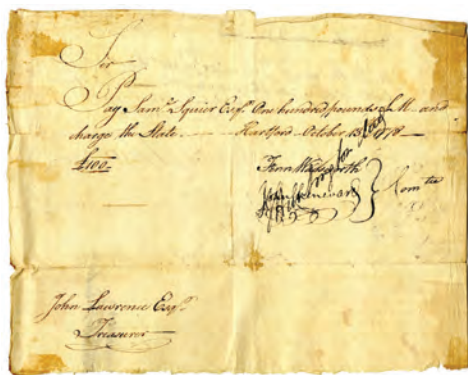 Sir
Pay Sam.ˡ Squier Esq.ʳ One hundred pounds L M and
charge the State Hartford October 15 1778
£100 Fenn Wadsworth
John Chenevard Com.tee
John Lawrence Esq.ʳ
Treasurer